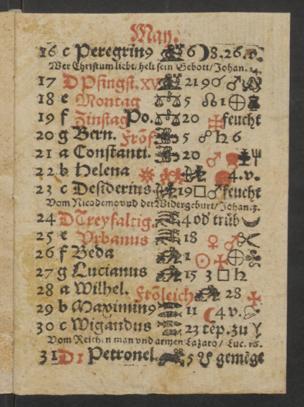 May.
16 c Peregrin9 6 8.26.
Wer Christum liebt, helt sein Gebott/Johan. 14.
17 D Pfingst. xv 21 9
18 e Montag 5 1
19 f Zinstag Po. 20 feucht
20 g Bern. Fröf 5 6
21 a Constanti. 20
22 b Helena 4.v.
23 c Desiderius 19 feucht
Vom Nicodemo vnd der Widergeburt/Johan.3.
24 D Treyfaltig. 4 od trüb
25 e Vrbanus 18
26 f Beda 1
27 g Lucianus 15 3
28 a Wilhel. Fröleich 28
29 b Maximin9 11 4 v.
30 c Wigandus 23 tep. zu
Vom Reichen man vnd armen Lazaro/Luc. 16.
31 D 1 Petronel. 5 gemēgt